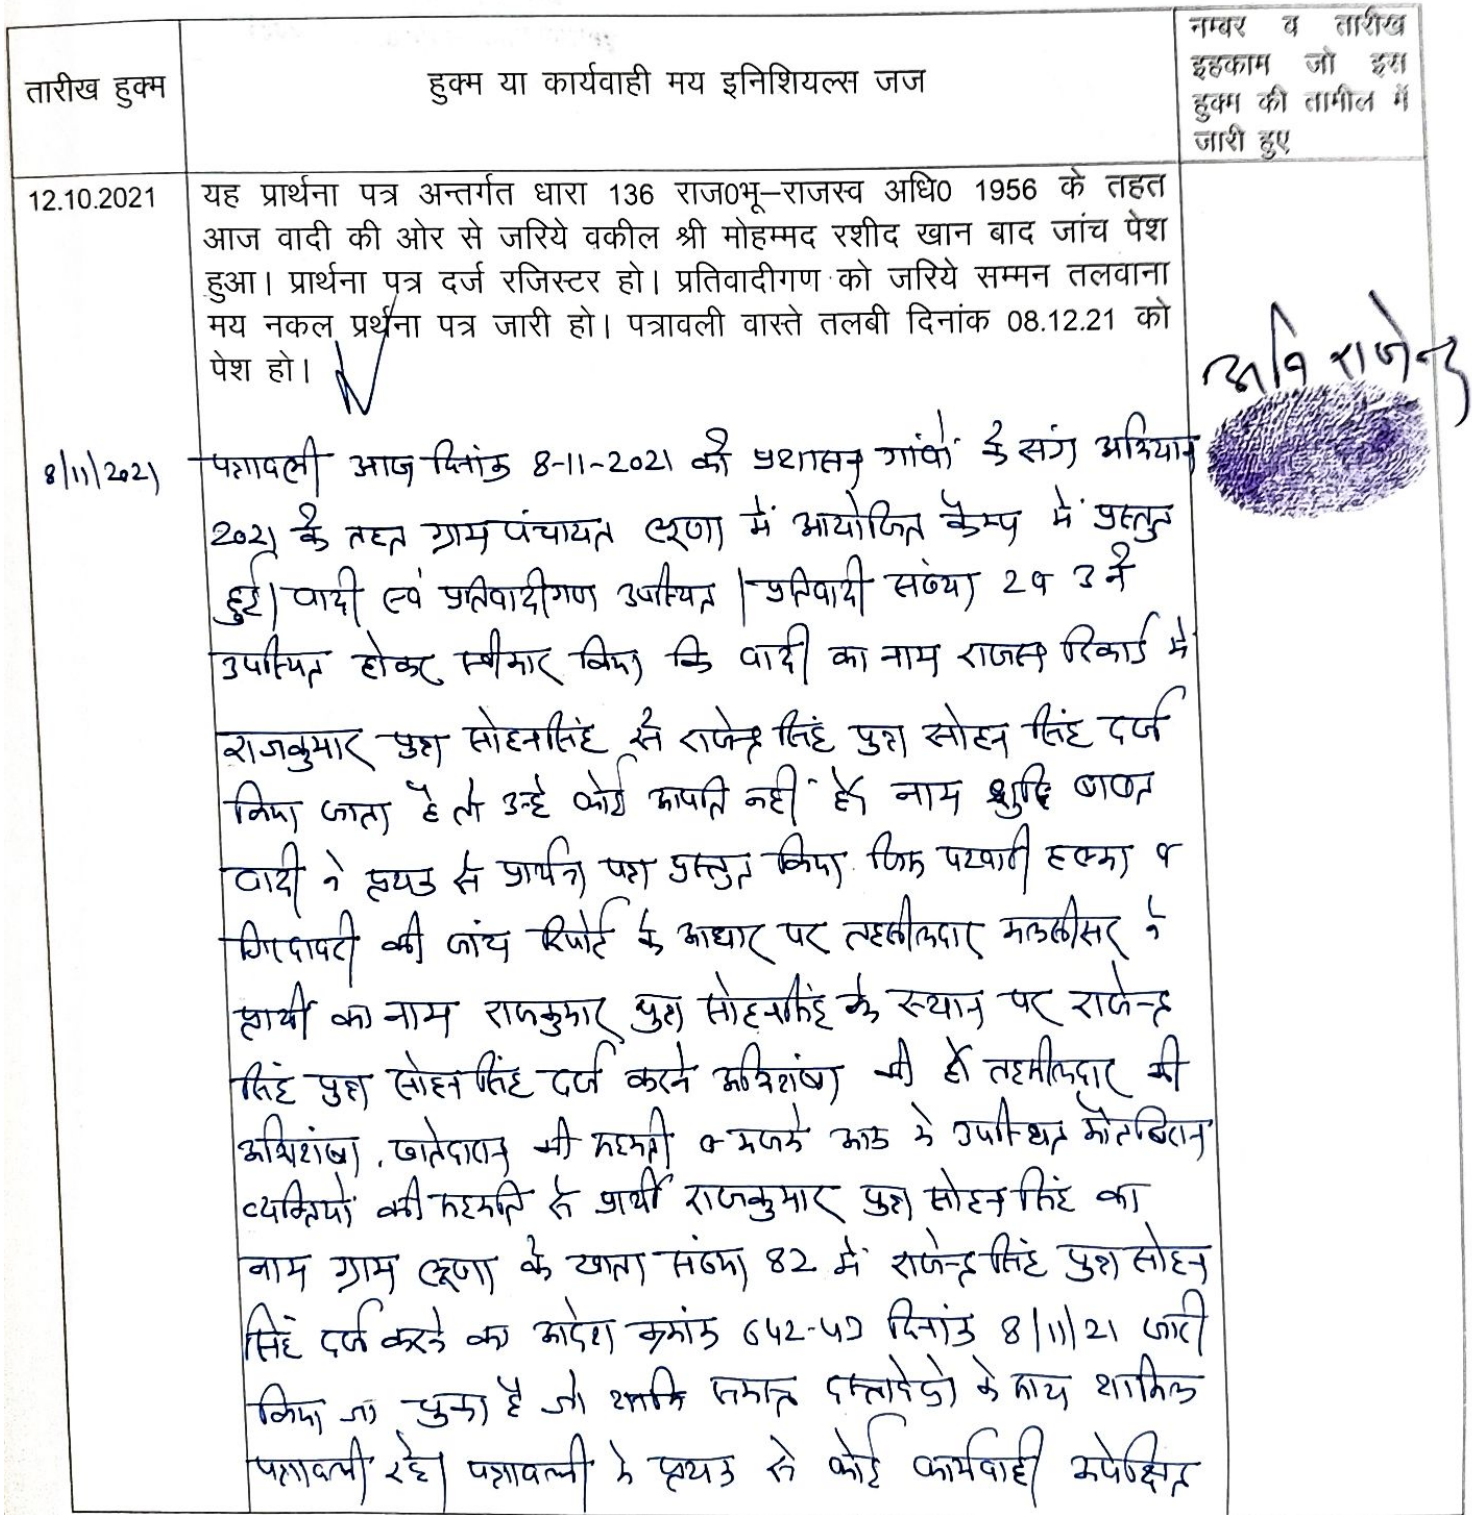 तारीख हुक्म
हुक्म या कार्यवाही मय इनिशियल्स जज
नम्बर व तारीख
इहकाम जो इस
हुक्म की तामील में
जारी हुए
12.10.2021
यह प्रार्थना पत्र अन्तर्गत धारा 136 राज0भू–राजस्व अधि0 1956 के तहत
आज वादी की ओर से जरिये वकील श्री मोहम्मद रशीद खान बाद जांच पेश
हुआ। प्रार्थना पत्र दर्ज रजिस्टर हो। प्रतिवादीगण को जरिये सम्मन तलवाना
मय नकल प्रर्थना पत्र जारी हो। पत्रावली वास्ते तलबी दिनांक 08.12.21 को
पेश हो।
8/11/2021
पत्रावली आज दिनांक 8-11-2021 को प्रशासन गांवों के संग अभियान
2021 के तहत ग्राम पंचायत लूणा में आयोजित कैम्प में प्रस्तुत
हुई। वादी एवं प्रतिवादीगण उपस्थित। प्रतिवादी संख्या 2 व 3 ने
उपस्थित होकर स्वीकार किया कि वादी का नाम राजस्व रिकार्ड में
राजकुमार पुत्र सोहनसिंह से राजेन्द्र सिंह पुत्र सोहन सिंह दर्ज
किया जाता है तो उन्हे कोई आपति नहीं है। नाम शुद्धि बाबत
वादी ने पृथक से प्रार्थना पत्र प्रस्तुत किया जिस पटवारी हल्का व
गिरदावरी की जांच रिपोर्ट के आधार पर तहसीलदार मलसीसर ने
प्रार्थी का नाम राजकुमार पुत्र सोहनसिंह के स्थान पर राजेन्द्र
सिंह पुत्र सोहन सिंह दर्ज करने अभिशंषा की है। तहसीलदार की
अभिशंषा, खातेदारान की सहमती व मजमे आम मे उपस्थित मौतबिरान
व्यक्तियों की सहमति से प्रार्थी राजकुमार पुत्र सोहन सिंह का
नाम ग्राम लूणा के खाता संख्या 82 में राजेन्द्र सिंह पुत्र सोहन
सिंह दर्ज करने का आदेश क्रमांक 642-49 दिनांक 8/11/21 जारी
किया जा चुका है जो समस्त दस्तावेजो के साथ शामिल
पत्रावली रहे। पत्रावली मे पृथक से कोई कार्यवाही अपेक्षित